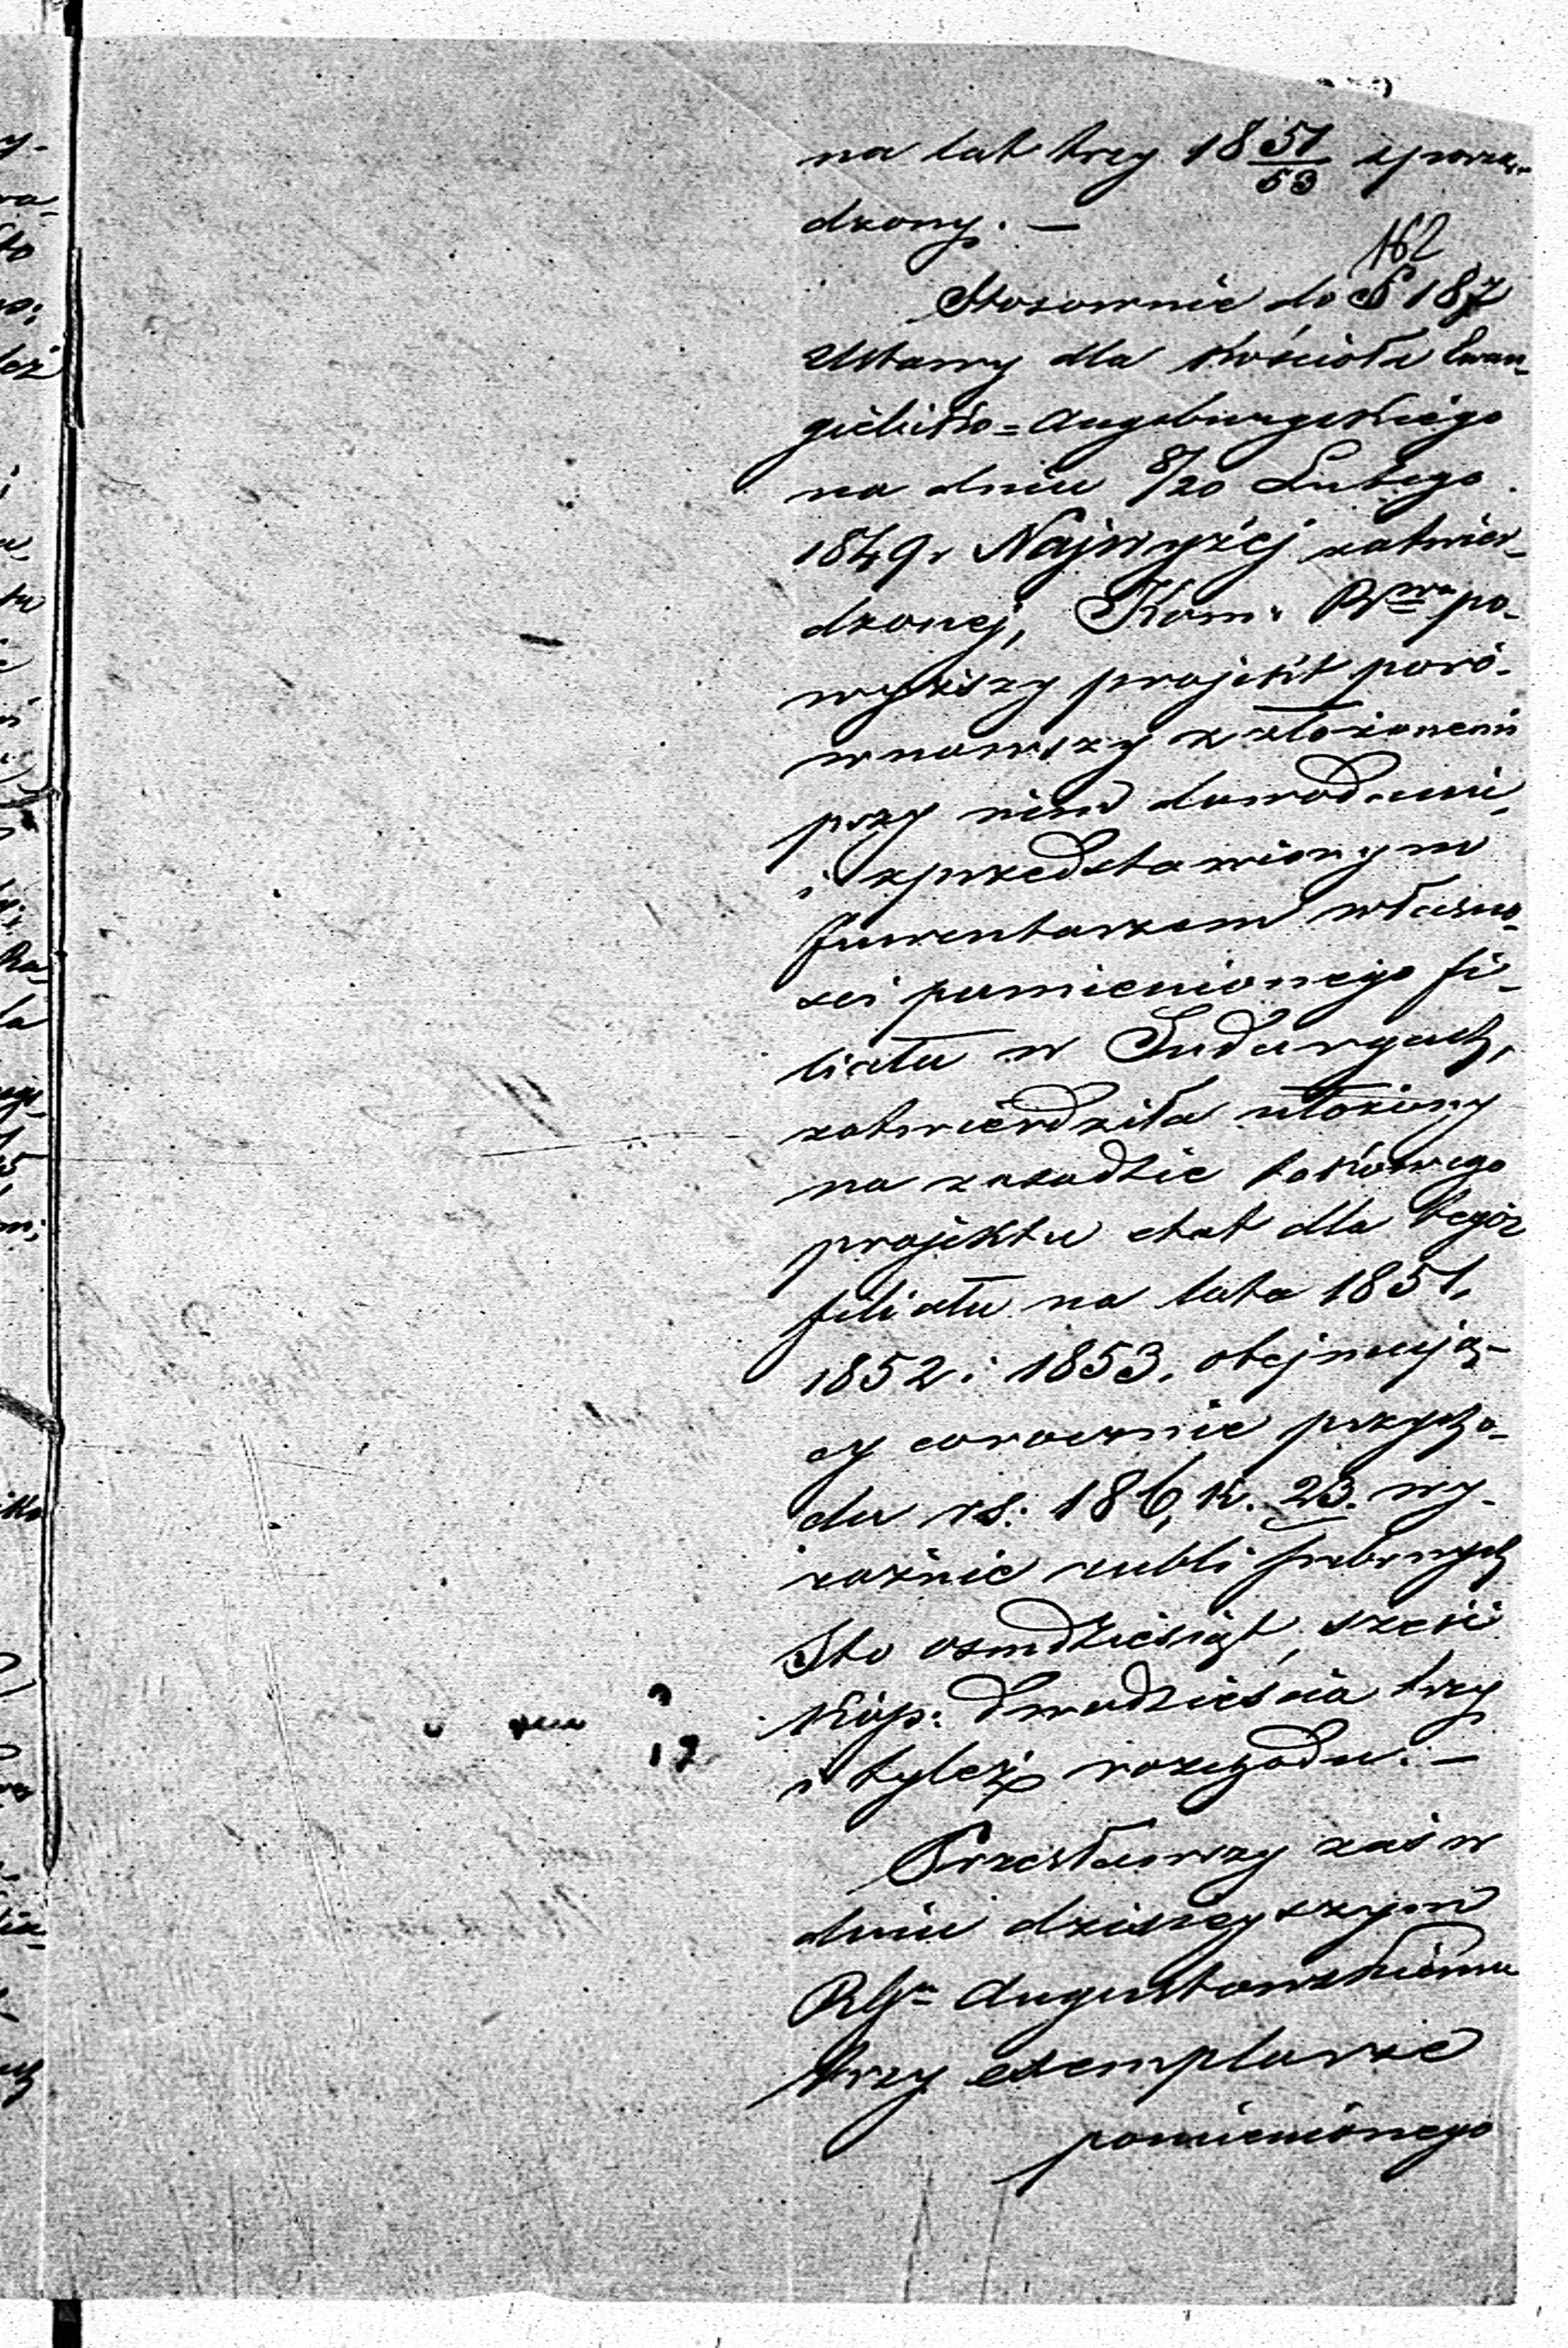 na lat trzy 18 51/53 sporzą-
dzony. —
162
Stosownie do § 187
Ustawy dla Kościoła Ewan-
gielicko=Augsburgskiego
na dniu 8/20 Lutego
1849 r. Najwyżéj zatwier-
dzonej, Kom: po-
wyższy projekt poró-
wnawszy z złożonemi
przy nim dowodami,
i z przedstawionym
Inwentarzem własno-
ści pomienionego fi-
liału w Sudargach,
zatwierdziła ułożony
na zasadzie takowego
projektu etat dla tegóż
filiału na lata 1851,
1852 i 1853, obejmują-
cy corocznie przycho-
du rs: 186, k. 23. wy-
raźnie rubli srebrnych
Sto osmdziesiąt sześć
kop: dwadzieścia trzy
i tyleż rozchodu. —
Przesławszy zaś w
dniu dzisiejszym
Augustowskiému
trzy exemplarze
pomienionego